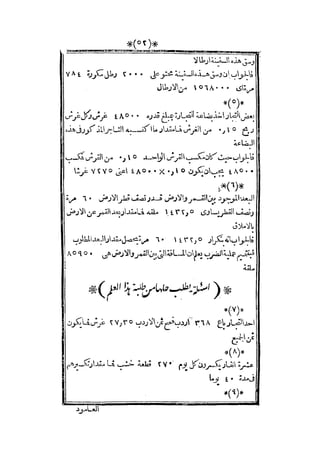 *(٥٢)*
وسق هذه السفينة ارطالا
فالجواب ان وسق هذه السفينة محتو على ٢٠٠٠ رطل مكررة ٧٨٤
مرة اى ١٥٦٨٠٠٠ من الارطال
*(٥)*
بعض التجار اخذ بضاعة التجارة بمبلغ قدره ٤٨٥٠٠ غرش وكل غرش
ربح ٠٫١٥ من الغرش فما مقدار ما اكتسبه التاجر المذكور فى هذه
البضاعة
فالجواب حيث كان مكسب الغرش الواحد ٠٫١٥ فمكسب
٤٨٥٠٠ يجب ان يكون ٠٫١٥ × ٤٨٥٠٠ اعنى ٧٢٧٥ غرشا
*(٦)*
البعد الموجود بين القمر والارض قدر نصف قطر الارض ٦٠ مرة
ونصف القطر يساوى ١٤٣٢٫٥ ملقة فما مقدار بعد القمر عن الارض
بالاملاق
فالجواب انه بتكرار ١٤٣٢٫٥ ٦٠ مرة يتحصل مقدار البعد المطلوب
فبتتميم عملية الضرب يعلم ان المسافة التى بين القمر والارض هى ٨٥٩٥٠
ملقة
*(اسئلة يطلب حلها من طلبة هذا العلم)*
*(٧)*
احد التجار باع ٣٦٨ اردب قمح ثمن الاردب ٢٧٫٣٥ غرش فما يكون
ثمن الجميع
*(٨)*
عشرة انفار يكسرون كل يوم ٢٧٠ قطعة خشب فما مقدار تكسيرهم
فى مدة ٤٠ يوما
*(٩)*
العامود